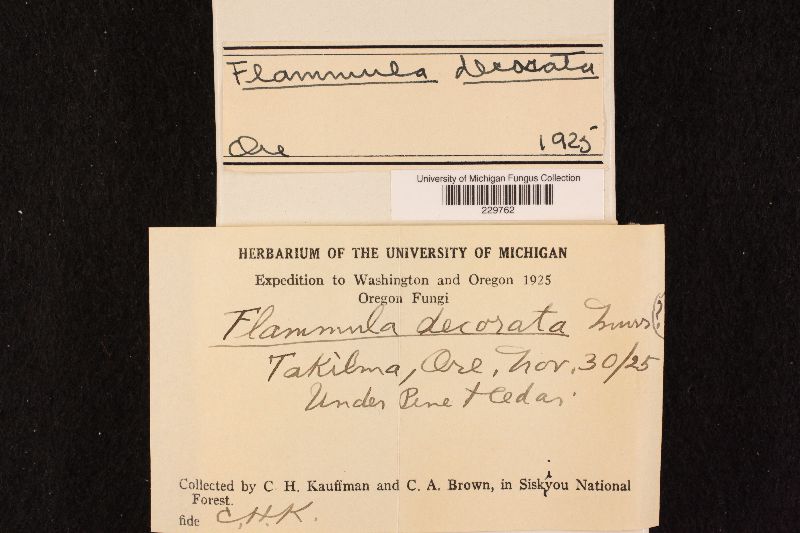 Flammula decorata
Ore 1925
University of Michigan Fungus Collection
229762
HERBARIUM OF THE UNIVERSITY OF MICHIGAN
Expedition to Washington and Oregon 1925
Oregon Fungi
Flammula decorata Murr (?)
Takilma, Ore, Nov. 30/25
Under Pine + Cedar.
Collected by C. H. Kauffman and C. A. Brown, in Siskiyou National
Forest.
fide C.H.K.